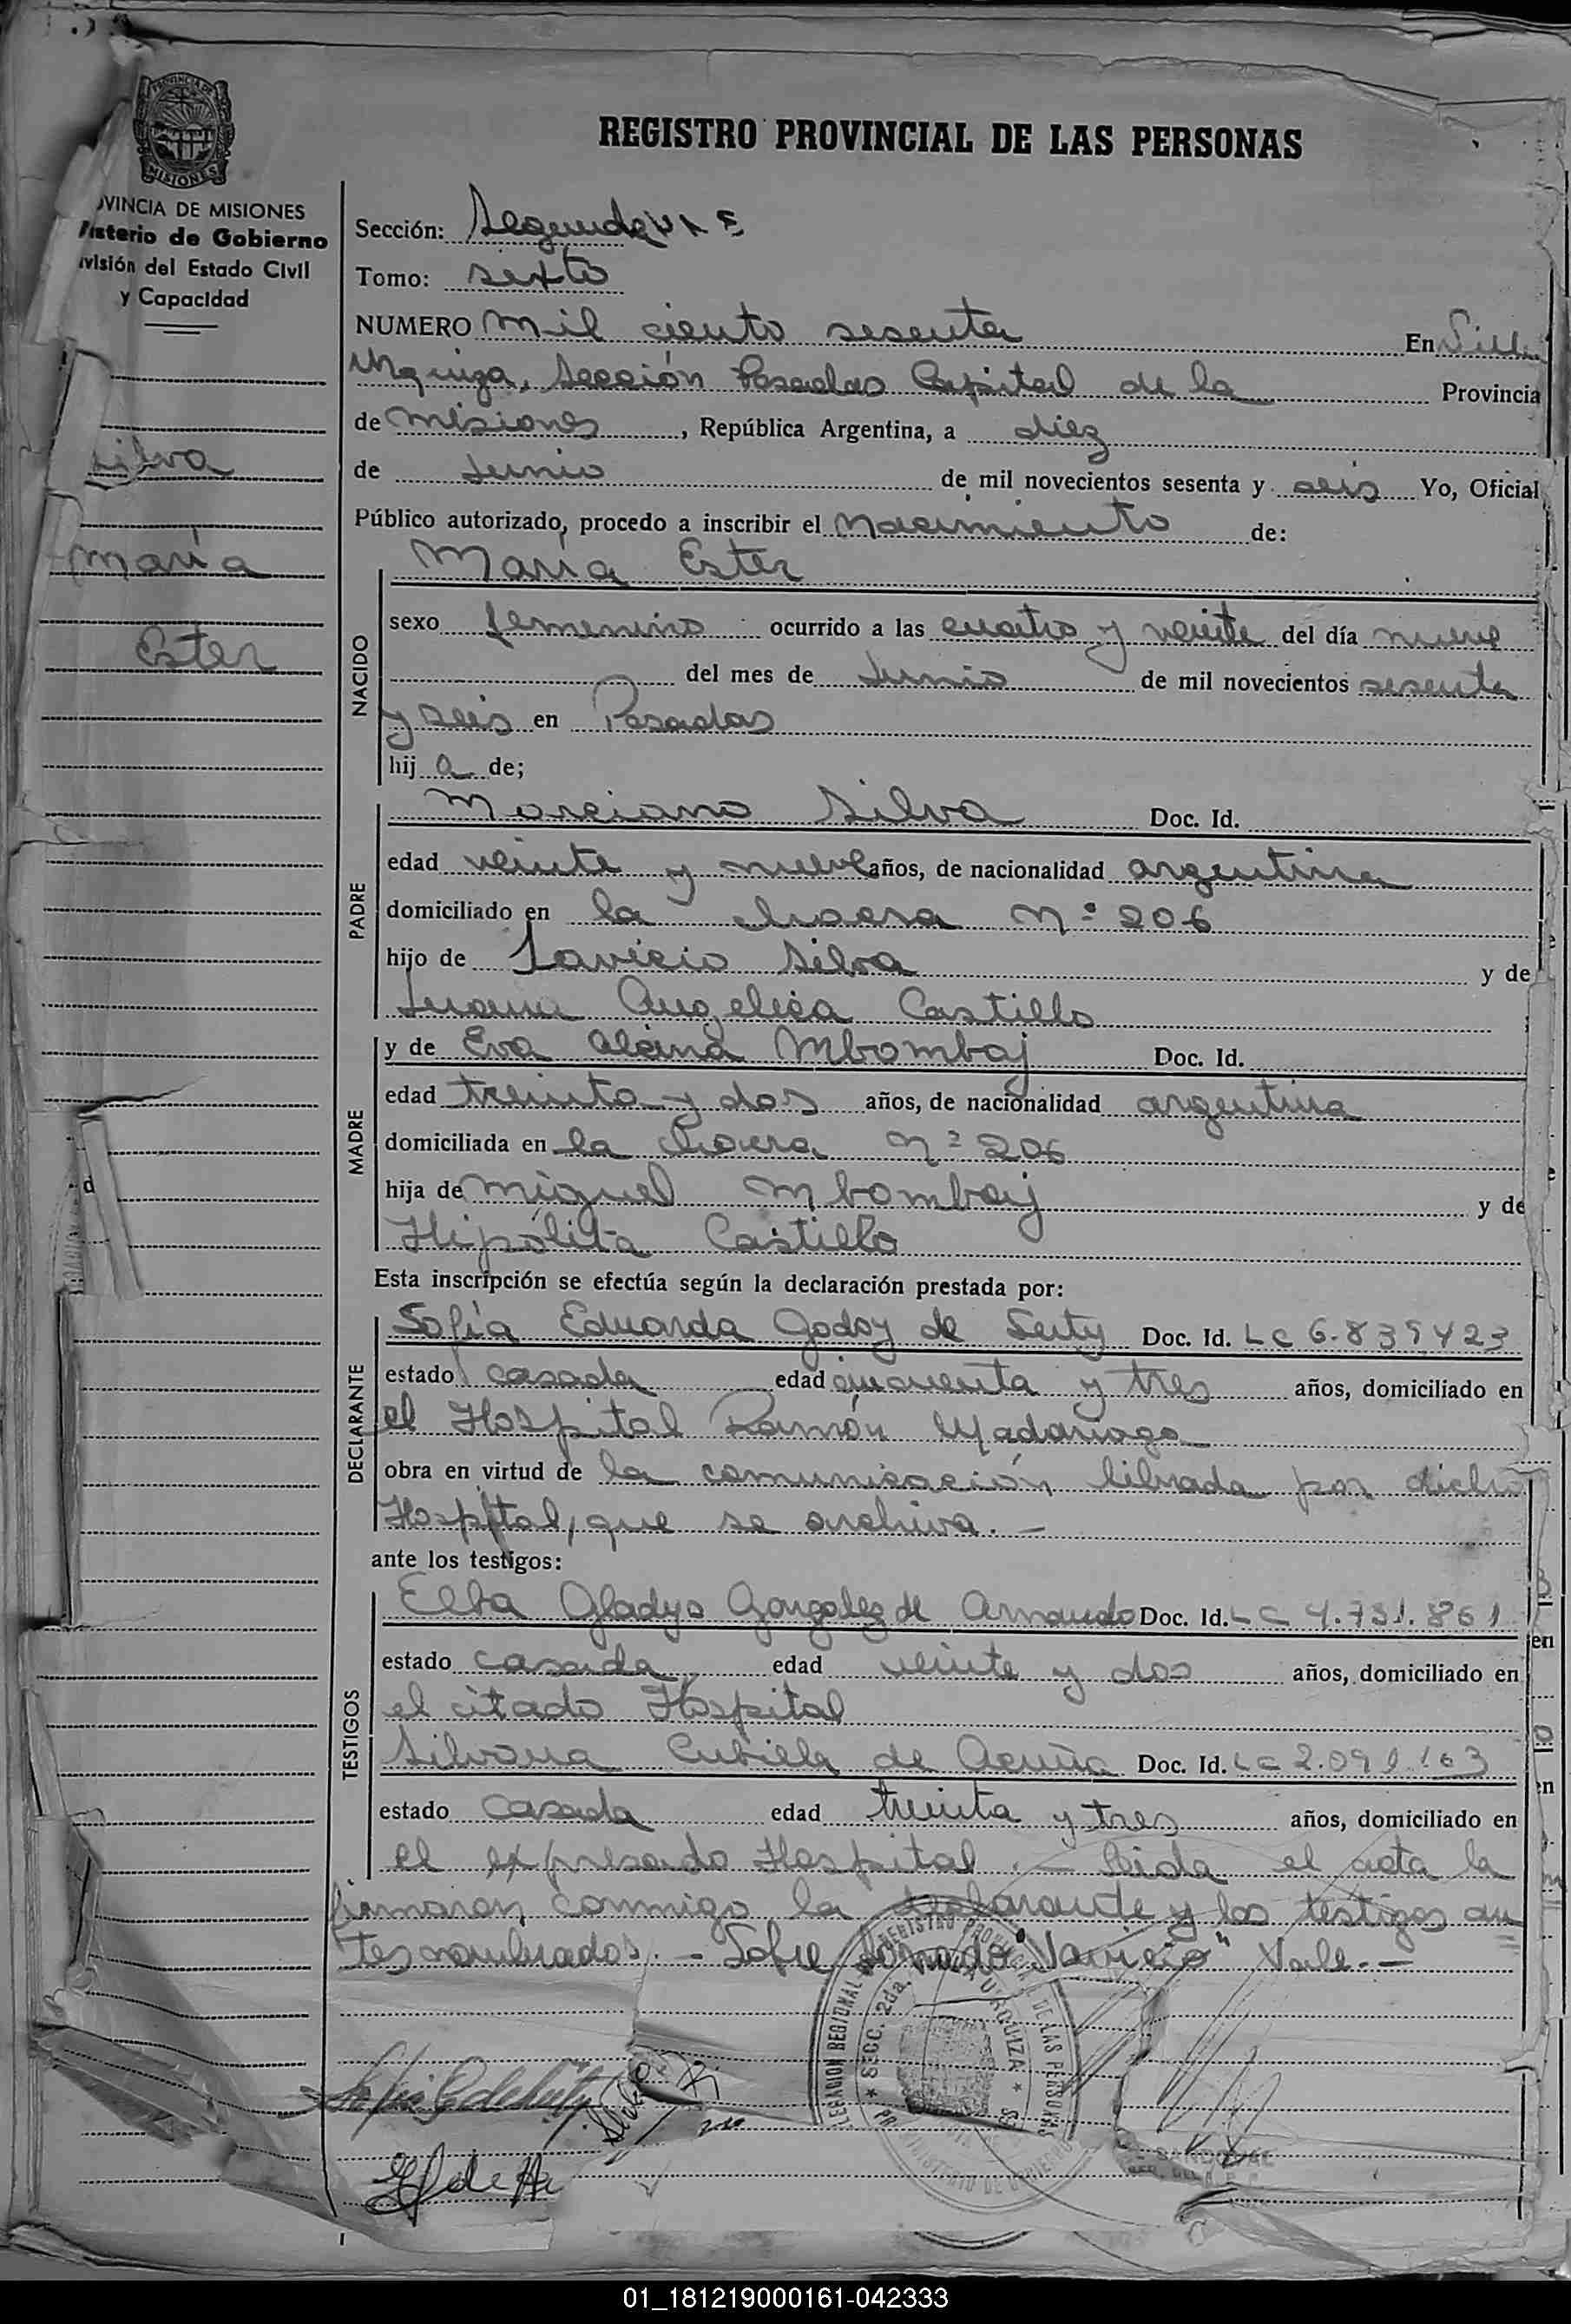 PROVINCIA DE
MISIONES
REGISTRO PROVINCIAL DE LAS PERSONAS
VINCIA DE MISIONES
isterio de Gobierno
ivisión del Estado Civil
y Capacidad
Silva
María
Ester
Sección: Segunda
Tomo: sexto
NUMERO Mil ciento sesenta En Villa
Urquiza, Sección Posadas Capital de la Provincia
de Misiones, República Argentina, a diez
de Junio de mil novecientos sesenta y seis Yo, Oficial
Público autorizado, procedo a inscribir el Nacimiento de:
NACIDO
María Ester
sexo femenino ocurrido a las cuatro y veinte del día nueve
del mes de Junio de mil novecientos sesenta
y seis en Posadas
hij a de;
PADRE
Marciano Silva Doc. Id.
edad veinte y nueve años, de nacionalidad argentina
domiciliado en la chacra Nº 206
hijo de Silva y de
Juana Angelica Castillo
MADRE
y de Eva Alcina Mbombaj Doc. Id.
edad treinta y dos años, de nacionalidad argentina
domiciliada en la chacra Nº 206
hija de Miguel Mbombaj y de
Hipólita Castillo
Esta inscripción se efectúa según la declaración prestada por:
DECLARANTE
Sofía Eduarda Godoy de Doc. Id. LC 6.839423
estado casada edad cincuenta y tres años, domiciliado en
el Hospital Ramón Madariaga
obra en virtud de la comunicación librada por dicho
Hospital, que se archiva. -
ante los testigos:
TESTIGOS
Elba Gladys Gonzalez de Doc. Id. LC 4.731.861
estado casada edad veinte y dos años, domiciliado en
el citado Hospital
Silvana Cubilla de Acuña Doc. Id. LC 2.091.163
estado casada edad treinta y tres años, domiciliado en
el expresado Hospital. - Leida el acta la
firmaron conmigo la declarante y los testigos an
tes nombrados. - Sobre borrado " " Vale. -
SECC. 2da. VILLA URQUIZA
SANDOVAL
01_181219000161-042333